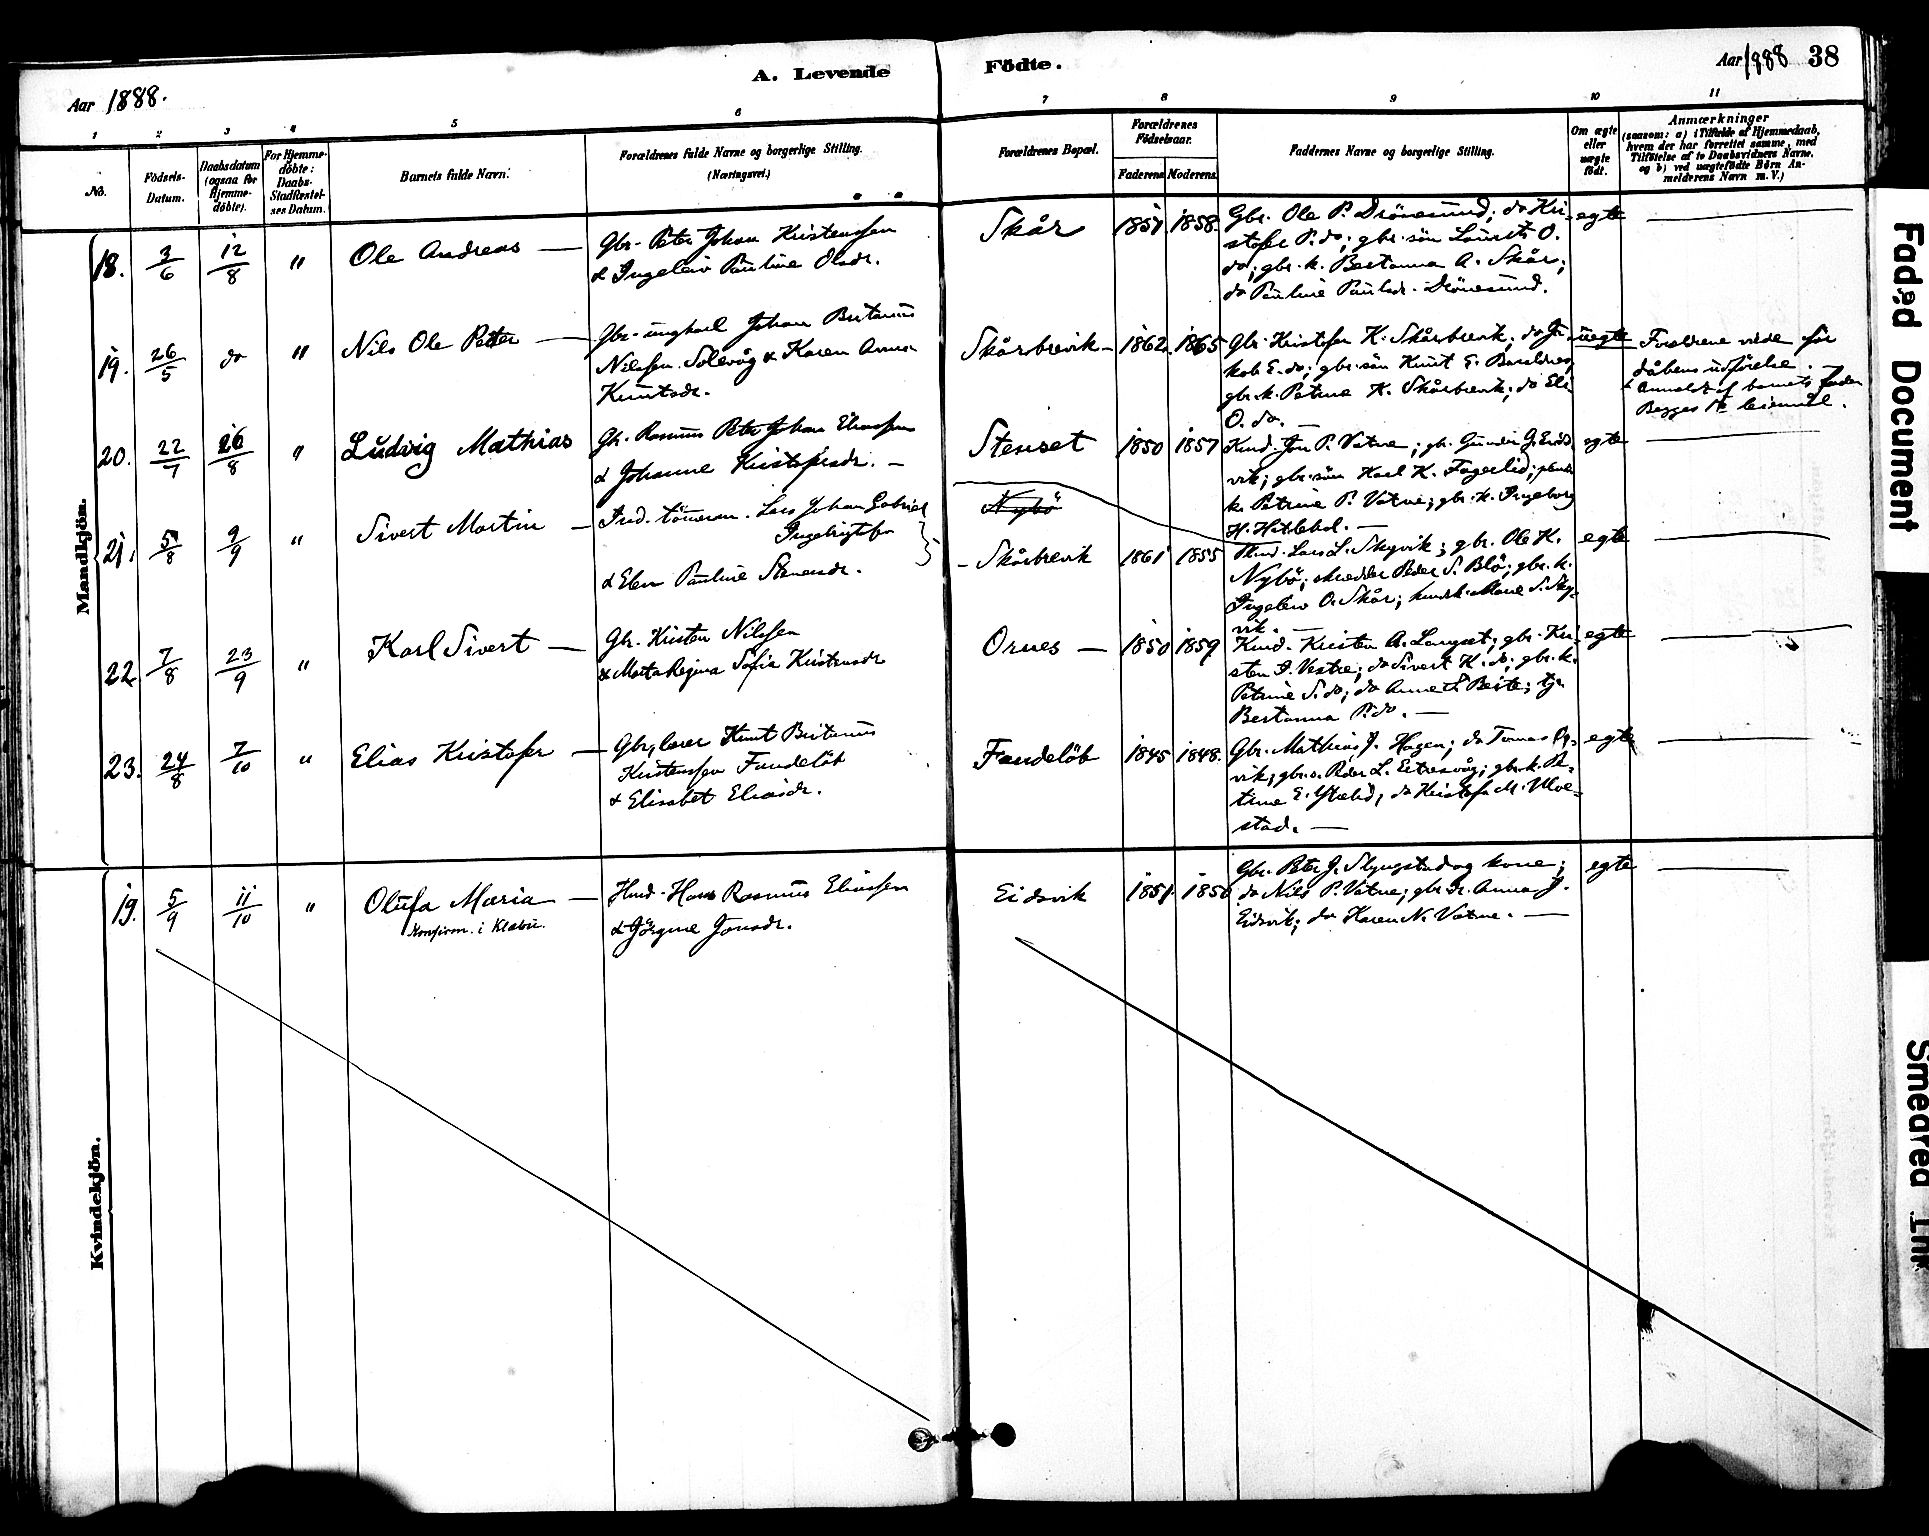 A. Levende Födte.
Aar 1888.
Aar 1888 38
1 2 3 4 5 6 7 8 9 10 11
No.
Födsels-Datum.
Daabsdatum (ogsaa for Hjemme-döbte).
For Hjemme-döbte: Daabs-Stadfæstel-ses Datum.
Barnets fulde Navn.
Forældrenes fulde Navne og borgerlige Stilling. (Næringsvei.)
Forældrenes Bopæl.
Forældrenes Födselsaar.
Faderens Moderens
Faddernes Navne og borgerlige Stilling.
Om ægte eller uægte födt.
Anmærkninger
(saasom: a) i Tilfælde af Hjemmedaab,
hvem der har forrettet samme, med
Tilföielse af to Daabsvidners Navne,
og b) ved uægtefödte Börn An-
melderens Navn m. V.)
Mandkjön.
18. 3/6 12/8 " Ole Andreas —
Gbr. Peter Johan Kristensen
& Ingeleiv Pauline Olsdr.
Skår 1857 1858.
Gbr. Ole P. Drönesund; do Kri-
stofer P. do; gbr. sön Laurits O.
do; gbr. k. Bertanna A. Skår;
do Pauline Paulsdr. Drönesund.
egte
19. 26/5 do " Nils Ole Peter —
Gbr. ungkarl Johan Bertinus
Nilssen Solevåg & Karen Anna
Knutsdr.
Skårbrevik — 1862. 1865
Gbr. Kristofer K. Skårbrevik; do Ja-
kob E. do; gbr. sön Knut E.
gbr. k. Petrine K. Skårbrevik; do Eli
O. do. —
uegte
Forældrene viede för
dåbens udförelse.
Anmeldt af barnets fader
Begges 1ste leiermål.
20. 22/7 26/8 " Ludvig Mathias
Gbr. Rasmus Peter Johan Eliassen
& Johanne Kristofersdr. —
Stenset 1850 1857
Kmd. Jon P. Vatne; gbr. Gunder G. Eids-
vik; gbr. sön Karl K. Fagerlid;
k. Petrine P. Vatne; gbr. k. Ingeborg
H. Hatlehol. —
egte
21. 5/8 9/9 " Sivert Martin —
Ind. tömmerm. Lars Johan Gabriel
Ingebrigtsen
& Elen Pauline Stenersdr.
Nybö
— Skårbrevik 1861 1855
Kmd. Lars L. Skyvik; gbr. Ole K.
Nybö; skredder Peder S. Blö; gbr. k.
Ingeleiv O. Skår; kmdsk. Marie S. Sky-
vik. —
egte
22. 7/8 23/9 " Karl Sivert —
Gbr. Kristen Nilssen
& Marta Regina Sofie Kristensdr
Ornes — 1850 1859
Kmd. Kristen A. Langset; gbr. Kri-
sten S. Vestre; do Sivert K. do; gbr. k.
Petrine S. do; do Anne Beite; tj.
Bertanna P. do. —
egte
23. 24/8 7/10 " Elias Kristofer —
Gbr, lærer Knut Bertinus
Kristensen Fandelöb
& Elisabet Eliasdr.
Fandelöb 1845 1848.
Gbr. Mathias J. Hagen; do Tomas
vik; gbr. s. Peder L. Eitresvåg; gbr. k. Pe-
trine E. do Kristofa M. Ulve-
stad. —
egte
Kvindekjön.
19. 5/9 11/10 " Olufa Maria —
Konfirm. i Klæbu.
Hmd. Hans Rasmus Eliassen
& Jörgine Jonsdr.
Eidsvik 1851 1856
Gbr. Peter J. Slyngstad og kone;
do Nils P. Vatne; gbr. dr. Anna J.
Eidsvik; do Karen N. Vatne. —
egte
Faded Document
Smeared Ink